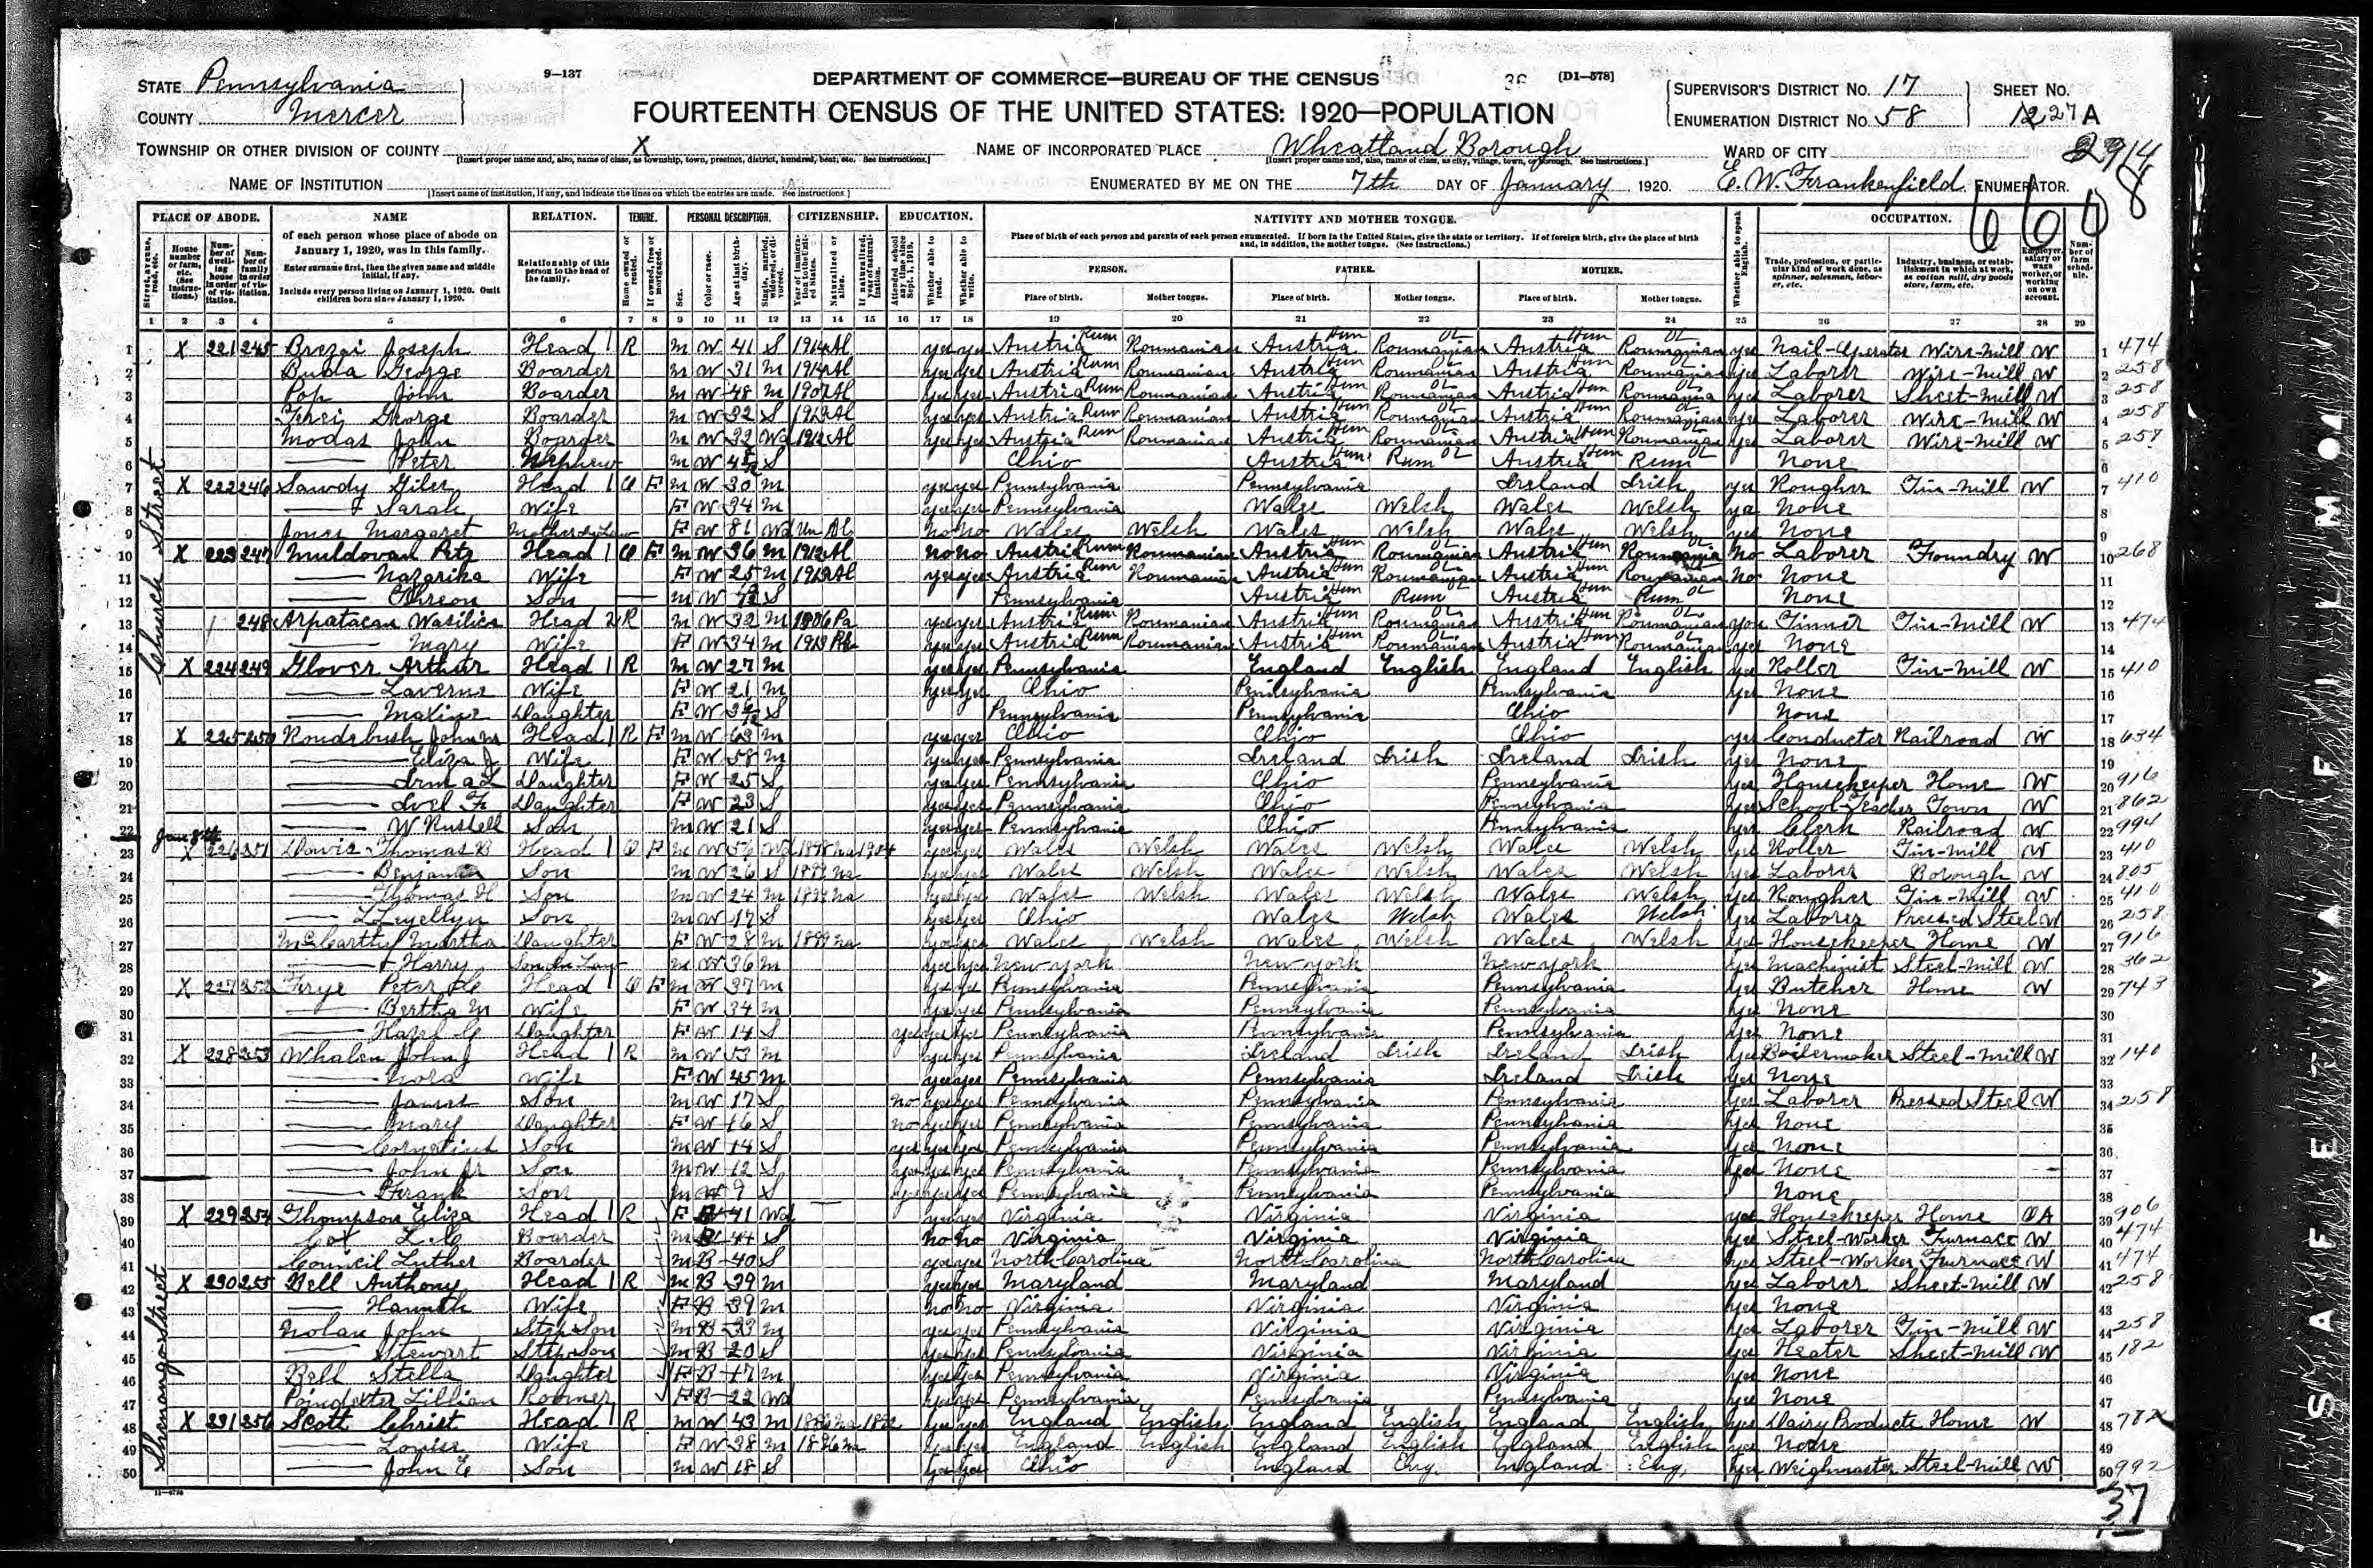 9—137
DEPARTMENT OF COMMERCE—BUREAU OF THE CENSUS
36 [D1—578]
STATE Pennsylvania
COUNTY Mercer
FOURTEENTH CENSUS OF THE UNITED STATES: 1920—POPULATION
SUPERVISOR'S DISTRICT NO. 17 SHEET NO.
ENUMERATION DISTRICT NO. 58 A
TOWNSHIP OR OTHER DIVISION OF COUNTY X
[Insert proper name and, also, name of class, as township, town, precinct, district, hundred, beat, etc. See instructions.]
NAME OF INCORPORATED PLACE Wheatland Borough
[Insert proper name and, also, name of class, as city, village, town, or borough. See instructions.]
WARD OF CITY 2914
NAME OF INSTITUTION
[Insert name of institution, if any, and indicate the lines on which the entries are made. See instructions.]
ENUMERATED BY ME ON THE 7th DAY OF January, 1920. E. W. Frankenfield, ENUMERATOR.
PLACE OF ABODE. NAME RELATION. TENURE. PERSONAL DESCRIPTION. CITIZENSHIP. EDUCATION. NATIVITY AND MOTHER TONGUE. OCCUPATION.
of each person whose place of abode on January 1, 1920, was in this family.
Enter surname first, then the given name and middle initial, if any.
Include every person living on January 1, 1920. Omit children born since January 1, 1920.
Relationship of this person to the head of the family.
Place of birth of each person and parents of each person enumerated. If born in the United States, give the state or territory. If of foreign birth, give the place of birth and, in addition, the mother tongue. (See instructions.)
PERSON. FATHER. MOTHER.
Place of birth. Mother tongue. Place of birth. Mother tongue. Place of birth. Mother tongue.
1 2 3 4 5 6 7 8 9 10 11 12 13 14 15 16 17 18 19 20 21 22 23 24 25 26 27 28 29
Church Street
1 X 221 245 Joseph Head 1 R M W 41 S 1914 Al yes yes Austria Rum Roumanian Austria Hun Roumanian Austria Hun Roumanian yes Nail-Operator Wire-Mill W 474
2 Buda George Boarder M W 31 M 1914 Al yes yes Austria Rum Roumanian Austria Hun Roumanian Austria Hun Roumanian yes Laborer Wire-Mill W 258
3 Pop John Boarder M W 48 M 1907 Al yes yes Austria Rum Roumanian Austria Hun Roumanian Austria Hun Roumania yes Laborer Sheet-Mill W 258
4 George Boarder M W 32 S Al yes yes Austria Rum Roumanian Austria Hun Roumanian Austria Hun Roumanian yes Laborer Wire-Mill W 258
5 Modas John Boarder M W 32 Wd 1912 Al yes yes Austria Rum Roumanian Austria Hun Roumanian Austria Hun Roumanian yes Laborer Wire-Mill W 258
6 Peter Nephew M W S Ohio Austria Hun Rum Austria Hun Rum None
7 X 222 246 Sawdy Giles Head 1 O F M W 30 M yes yes Pennsylvania Pennsylvania Ireland Irish yes Rougher Tin-Mill W 410
8 Sarah Wife F W 34 M yes yes Pennsylvania Wales Welsh Wales Welsh None
9 Jones Margaret Mother-in-Law F W 81 Wd Un Al no no Wales Welsh Wales Welsh Wales Welsh yes None
10 X 223 247 Muldovan Pete Head 1 O F M W 36 M 1912 Al no no Austria Rum Roumanian Austria Hun Roumanian Austria Hun Roumania no Laborer Foundry W 268
11 Nazarika Wife F W 25 M Al yes yes Austria Rum Roumanian Austria Hun Roumanian Austria Hun Roumanian no None
12 Son M W S Pennsylvania Austria Hun Rum Austria Hun Rum None
13 248 Arpatacan Wasilica Head 2 R M W 32 M 1906 Pa yes yes Austria Rum Roumanian Austria Hun Roumanian Austria Hun Roumanian yes Tinner Tin-Mill W 474
14 Mary Wife F W 34 M 1913 yes yes Austria Rum Roumanian Austria Hun Roumanian Austria Hun Roumanian yes None
15 X 224 249 Glover Arthur Head 1 R M W 27 M yes yes Pennsylvania England English England English yes Roller Tin-Mill W 410
16 Laverne Wife F W 21 M yes yes Ohio Pennsylvania Pennsylvania yes None
17 Maxine Daughter F W S Pennsylvania Pennsylvania Ohio None
18 X 225 250 Roudebush John M Head 1 R F M W 63 M yes yes Ohio Ohio Ohio yes Conductor Railroad W 634
19 Eliza J Wife F W 58 M yes yes Pennsylvania Ireland Irish Ireland Irish yes None
20 Irma L Daughter F W 25 S yes yes Pennsylvania Ohio Pennsylvania yes Housekeeper Home W 916
21 F Daughter F W 23 S yes yes Pennsylvania Ohio Pennsylvania yes School-Teacher Town W 862
22 W Russell Son M W 21 S yes yes Pennsylvania Ohio Pennsylvania yes Clerk Railroad W 994
Jan 8th
23 X 226 251 Davis Thomas B Head 1 O F M W 56 Wd Na 1904 yes yes Wales Welsh Wales Welsh Wales Welsh yes Roller Tin-Mill W 410
24 Benjamin Son M W 26 S 1899 Na yes yes Wales Welsh Wales Welsh Wales Welsh yes Laborer Borough W 805
25 Thomas H Son M W 24 M 1899 Na yes yes Wales Welsh Wales Welsh Wales Welsh yes Rougher Tin-Mill W 410
26 Llewellyn Son M W 17 S yes yes Ohio Wales Welsh Wales Welsh yes Laborer Pressed Steel W 258
27 McCarthy Martha Daughter F W 28 M 1899 Na yes yes Wales Welsh Wales Welsh Wales Welsh yes Housekeeper Home W 916
28 Harry Son In Law M W 36 M yes yes New York New York New York yes Machinist Steel-Mill W 362
29 X 227 252 Frye Peter Head 1 O F M W 37 M yes yes Pennsylvania Pennsylvania Pennsylvania yes Butcher Home W 743
30 Bertha M Wife F W 34 M yes yes Pennsylvania Pennsylvania Pennsylvania yes None
31 Hazel Daughter F W 14 S yes yes yes Pennsylvania Pennsylvania Pennsylvania yes None
32 X 228 253 Whalen John J Head 1 R M W 53 M yes yes Pennsylvania Ireland Irish Ireland Irish yes Boilermaker Steel-Mill W 140
33 Nora Wife F W 45 M yes yes Pennsylvania Pennsylvania Ireland Irish yes None
34 James Son M W 17 S no yes yes Pennsylvania Pennsylvania Pennsylvania yes Laborer Pressed Steel W 258
35 Mary Daughter F W 16 S no yes yes Pennsylvania Pennsylvania Pennsylvania yes None
36 Cornelius Son M W 14 S yes yes yes Pennsylvania Pennsylvania Pennsylvania yes None
37 John Jr Son M W 12 S yes yes yes Pennsylvania Pennsylvania Pennsylvania yes None
38 Frank Son M W 9 S yes yes yes Pennsylvania Pennsylvania Pennsylvania None
Shenango Street
39 X 229 254 Thompson Eliza Head 1 R F B 41 Wd yes yes Virginia Virginia Virginia yes Housekeeper Home OA 906
40 Cox Boarder M B 44 S no no Virginia Virginia Virginia yes Steel-Worker Furnace W 474
41 Council Luther Boarder M B 40 S yes yes North Carolina North Carolina North Carolina yes Steel-Worker Furnace W 474
42 X 230 255 Bell Anthony Head 1 R M B 39 M yes yes Maryland Maryland Maryland yes Laborer Sheet-Mill W 258
43 Hannah Wife F B 39 M no no Virginia Virginia Virginia yes None
44 Nolan John Step Son M B M yes yes Pennsylvania Virginia Virginia yes Laborer Tin-Mill W 258
45 Stewart Step Son M B 20 S yes yes Pennsylvania Virginia Virginia yes Heater Sheet-Mill W 182
46 Bell Stella Daughter F B 17 M yes yes Pennsylvania Virginia Virginia yes None
47 Poindexter Lillian Roomer F B 22 Wd yes yes Pennsylvania Pennsylvania Pennsylvania yes None
48 X 231 256 Scott Christ Head 1 R M W 43 M Na yes yes England English England English England English yes Dairy Products Home W 782
49 Louise Wife F W 38 M Na yes yes England English England English England English yes None
50 John E Son M W 18 S yes yes Ohio England Eng. England Eng. yes Weighmaster Steel-Mill W 992
37
SAFETY FILM